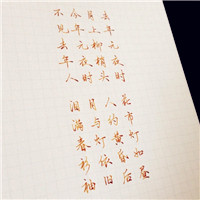 去年元夜时 花市灯如昼
月上柳梢头 人约黄昏后
今年元夜时 月与灯依旧
不见去年人 泪满春衫袖